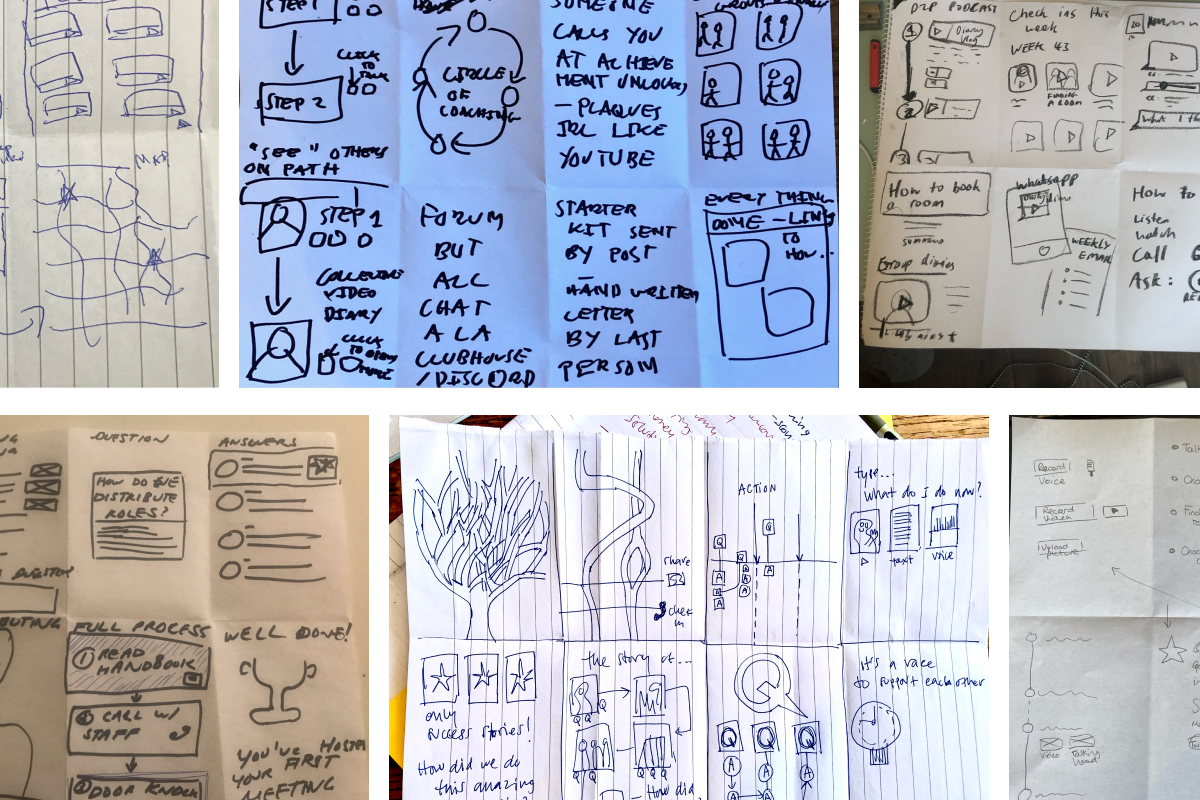 MAP
STEP 1
CLICK
TO
TALK
STEP 2
"SEE" OTHERS
ON PATH
STEP 1
VIDEO
DIARY
CIRCLE
OF
COACHING
FORUM
BUT
ALL
CHAT
A LA
CLUBHOUSE
/DISCORD
SOMEONE
CALLS YOU
AT ACHIEVE
MENT UNLOCKED
- PLAQUES
IRL LIKE
YOUTUBE
STARTER
KIT SENT
BY POST
-
HAND WRITTEN
LETTER
BY LAST
PERSON
EVERY THING
SOME - LINKS
TO
HOW...
D2P PODCAST
1
Diary
Vlog
2
3
Check ins this
week
WEEK 43
FINDING
A ROOM
20
What I th
How to book
a room
SUMMARY
Group diaries
Whatsapp
WEEKLY
EMAIL
How to
Listen
watch
Call
Ask:
QUESTION
HOW DO WE
DISTRIBUTE
ROLES?
ANSWERS
FULL PROCESS
1 READ
HANDBOOK
2 CALL W/
STAFF
3 DOOR KNOCK
WELL DONE!
YOU'VE HOSTED
YOUR FIRST
MEETING
share
check
in
ACTION
Q
Q
A
A
A
A
A
A
type...
what do I do now?
text
voice
only
success stories!
How did we do
this amazing
the story of...
Q Q
Q Q Q
Q Q Q
How did
Q
Q Q Q
A A A
A A
it's a race
to support each other
Record
Voice
Record
Video
Upload
picture
Talk
Cho
Find
Choo
Video
Talking
Head